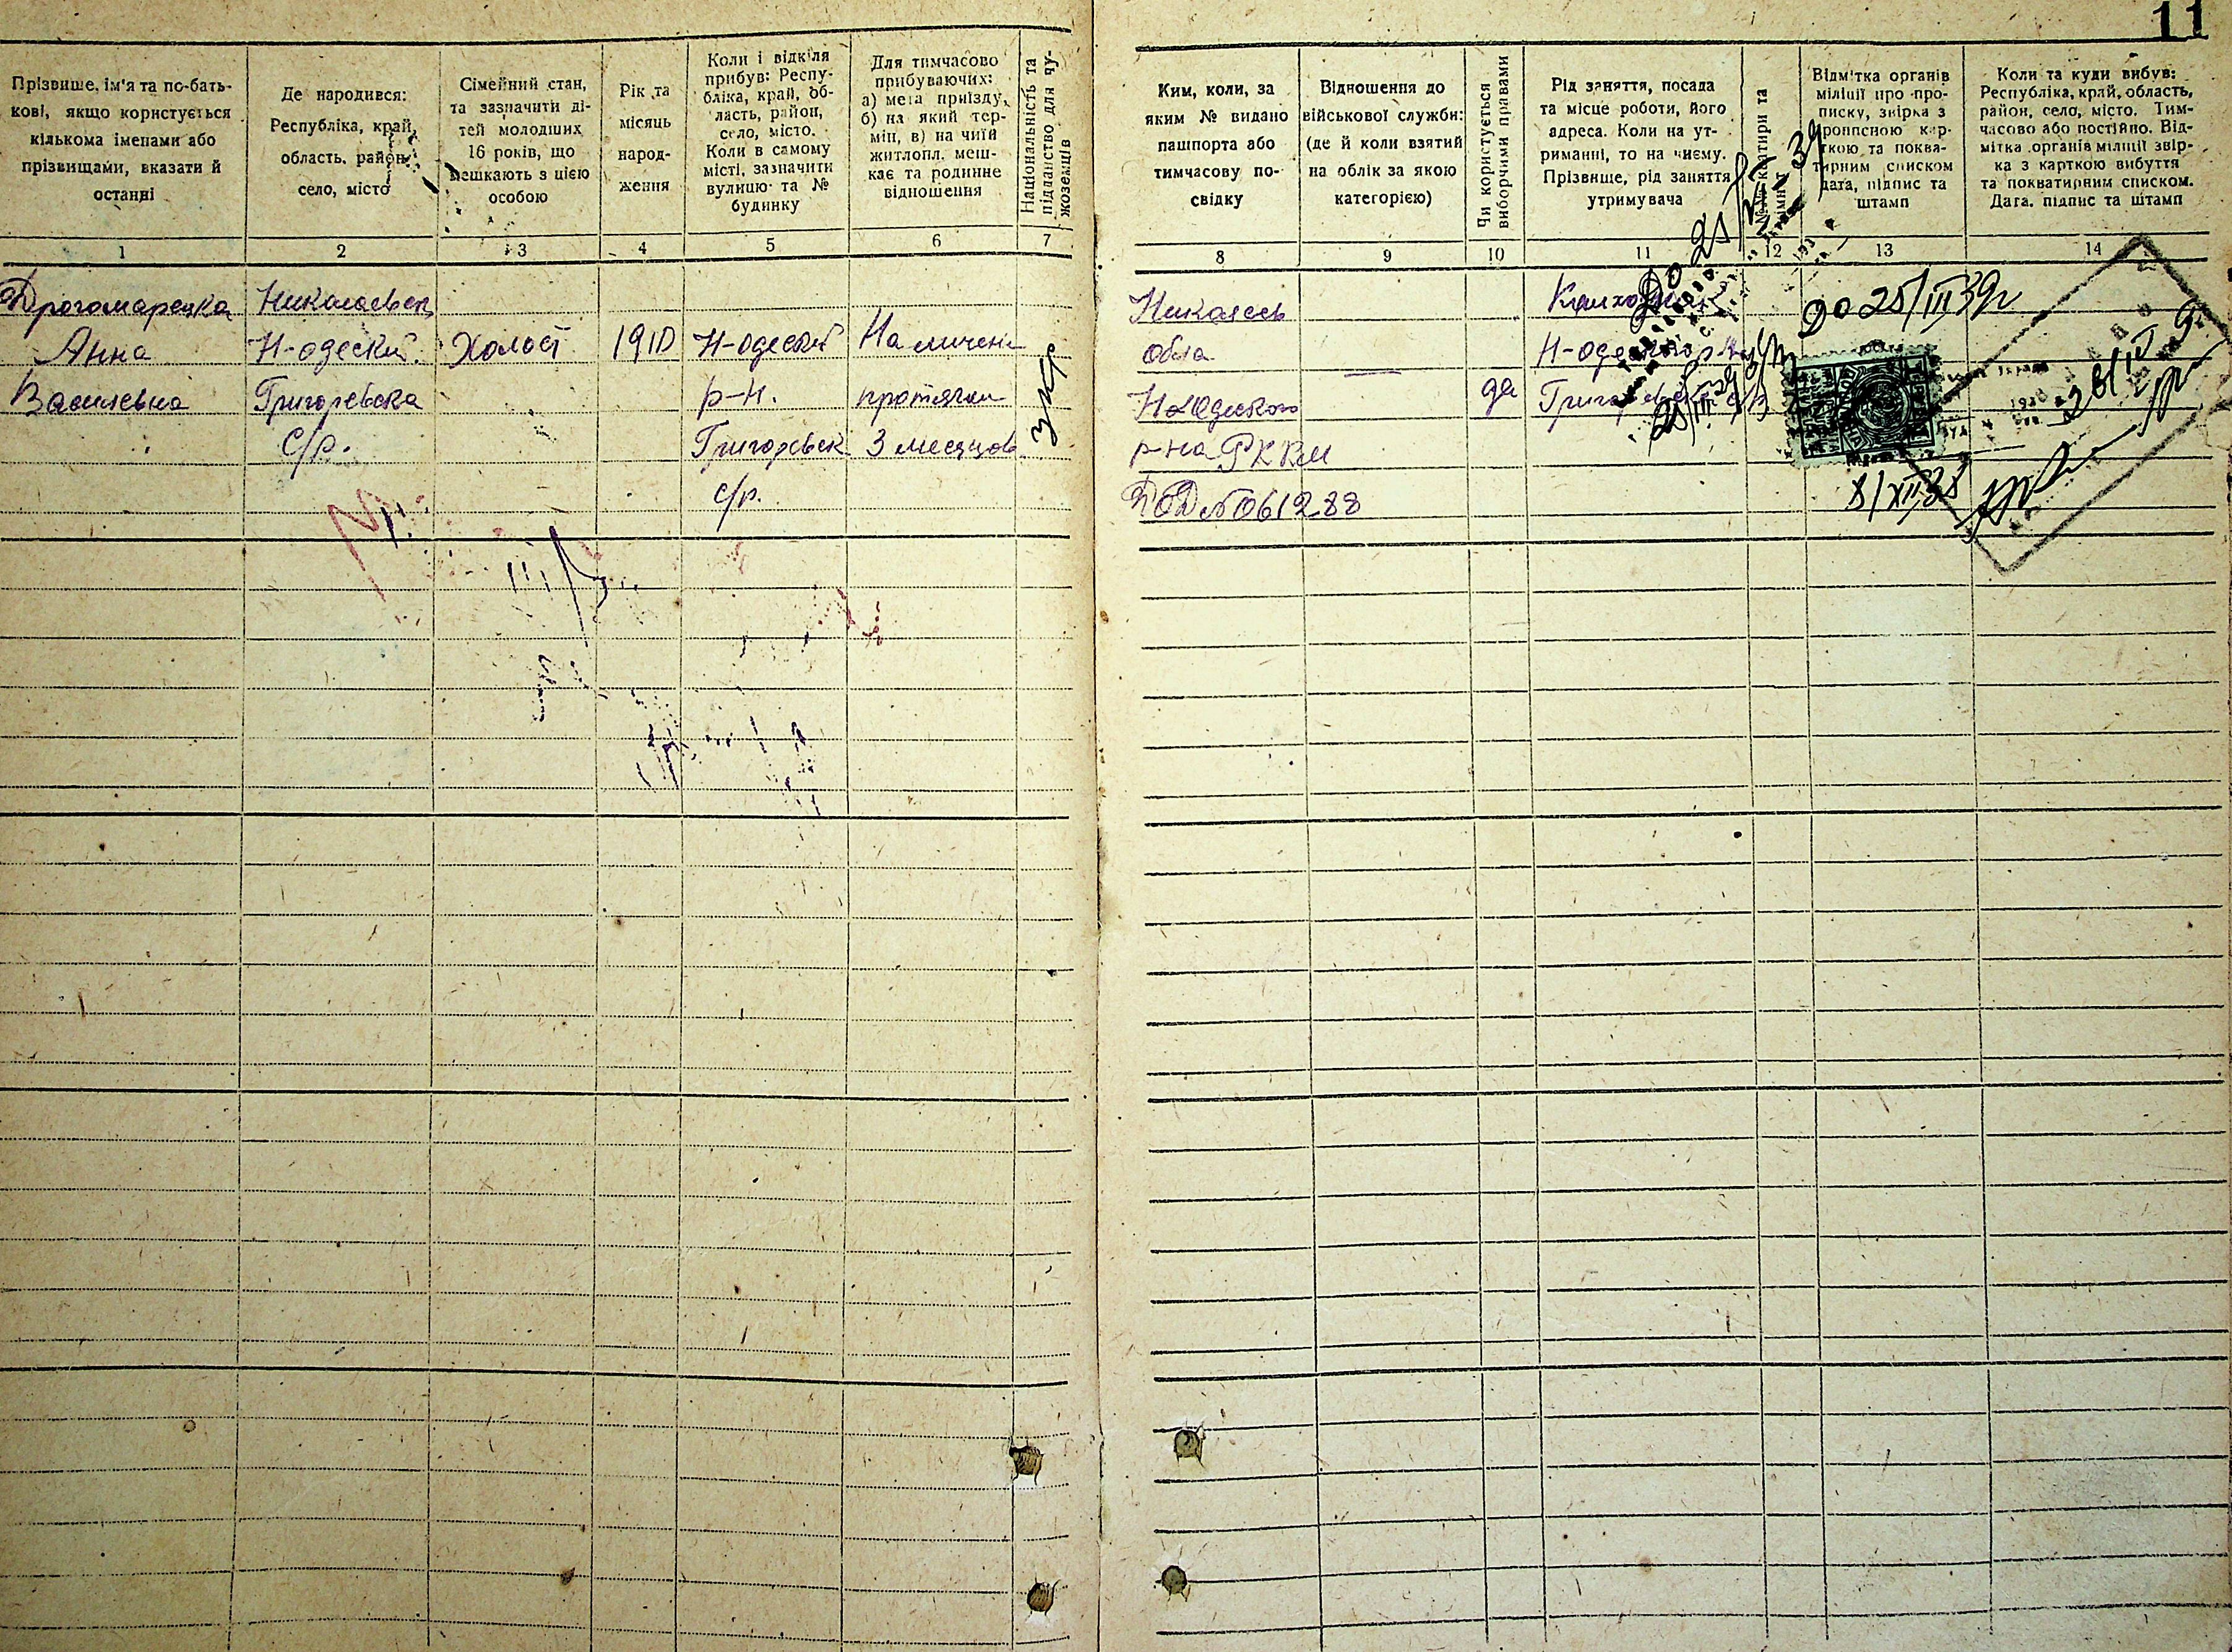 11
Прізвище, ім'я та по-бать-
кові, якщо користується
кількома іменами або
прізвищами, вказати й
останні
Де народився:
Республіка, край,
область, район,
село, місто
Сімейний стан,
та зазначити ді-
тей молодших
16 років, що
мешкають з цією
особою
Рік та
місяць
народ-
ження
Коли і відкіля
прибув: Респу-
бліка, край, об-
ласть, район,
село, місто.
Коли в самому
місті, зазначити
вулицю та №
будинку
Для тимчасово
прибуваючих:
а) мета приїзду,
б) на який тер-
мін, в) на чиїй
житлопл. меш-
кає та родинне
відношення
Національність та
підданство для чу-
жоземців
Ким, коли, за
яким № видано
пашпорта або
тимчасову по-
свідку
Відношення до
військової служби:
(де й коли взятий
на облік за якою
категорією)
Чи користується
виборчими правами
Рід заняття, посада
та місце роботи, його
адреса. Коли на ут-
риманні, то на чиєму.
Прізвище, рід заняття
утримувача
квартири та
Відмітка органів
міліції про про-
писку, звірка з
прописною кар-
ткою та поква-
тирним списком
дата, підпис та
штамп
Коли та куди вибув:
Республіка, край, область,
район, село, місто. Тим-
часово або постійно. Від-
мітка органів міліції звір-
ка з карткою вибуття
та покватирним списком.
Дата, підпис та штамп
1 2 3 4 5 6 7 8 9 10 11 12 13 14
Дрогомарецка
Анна
Василевна
Николаевск
Н-одеский
Григоревска
С/р.
Холост
1910
Н-одеский
р-н.
Григоревск
с/р.
На личени
протячки
3 месяцов
укр
Николаев
обла
Н-Одеского
р-на РККМ
ДОД №061288
да
Н-одеского р-н
до 25/III 39г
8/XII 38